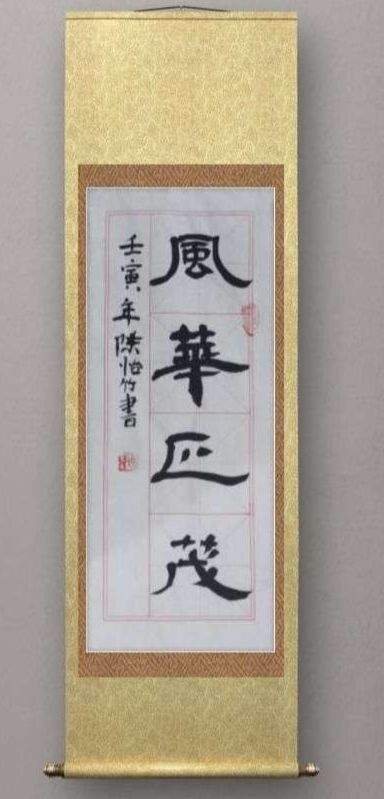 風華正茂
壬寅年陳怡竹書